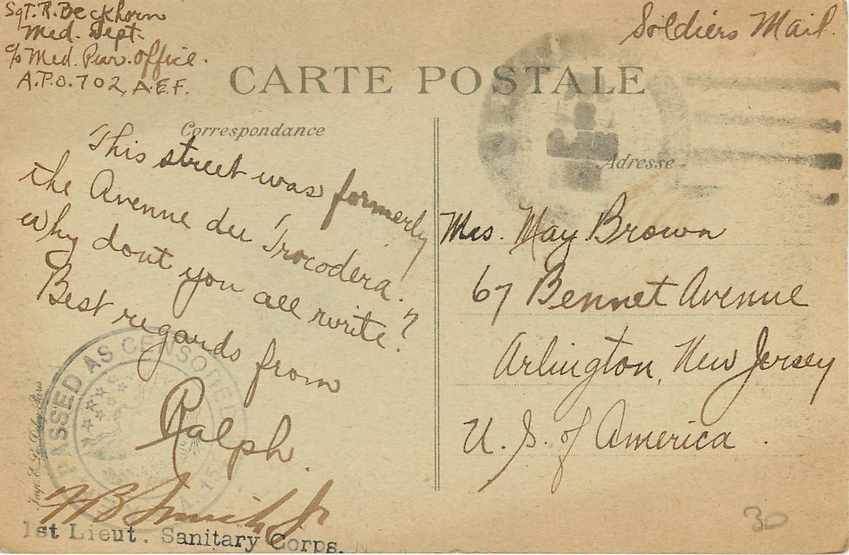 Sgt. R. Beckhorn
Med. Dept.
c/o Med. Purv. Office.
A.P.O. 702, A.E.F.
Soldiers Mail.
CARTE POSTALE
Correspondance
Adresse
This street was formerly
the Avenue du Trocodera.
Why dont you all write?
Best regards from
Ralph.
Mrs. May Brown
67 Bennet Avenue
Arlington, New Jersey
U. S. of America.
PASSED AS CENSORED
H B Smith Jr
1st Lieut. Sanitary Corps.
30